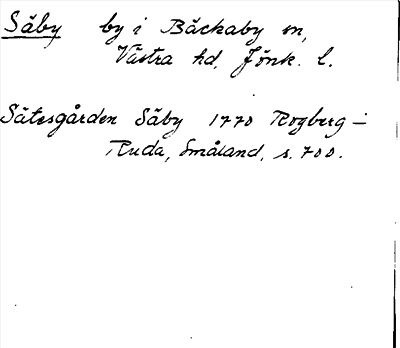 Säby by i Bäckaby sn,
Västra hd, Jönk. l.
Sätesgården Säby 1770 Rogberg –
Ruda, Småland, s. 700.